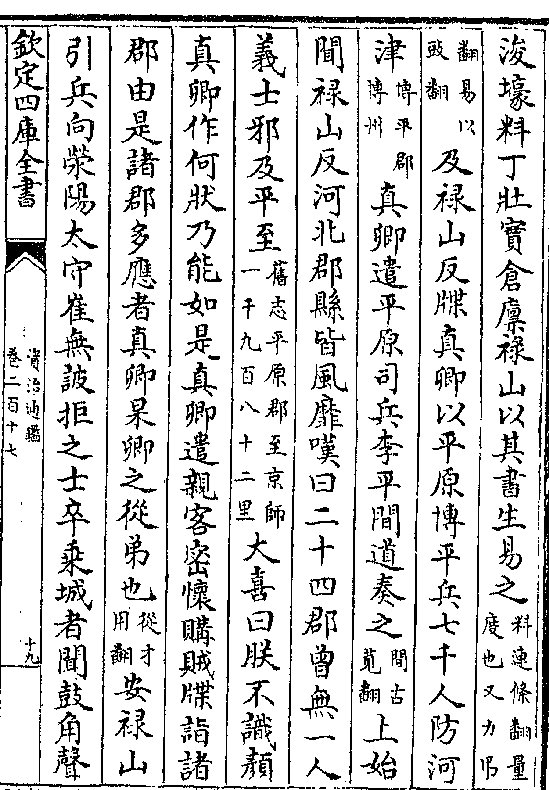 浚壕料丁壯實倉廩祿山以其書生易之料連條翻量度也又力弔
翻易以豉翻及祿山反牒真卿以平原博平兵七千人防河
津博平郡博州真卿遣平原司兵李平間道奏之間古莧翻上始
聞祿山反河北郡縣皆風靡嘆曰二十四郡曾無一人
義士邪及平至舊志平原郡至京師一千九百八十二里大喜曰朕不識顏
真卿作何狀乃能如是真卿遣親客密懷購賊牒詣諸
郡由是諸郡多應者真卿杲卿之從弟也從才用翻安祿山
引兵向滎陽太守崔無詖拒之士卒乘城者聞鼓角聲
欽定四庫全書
資治通鑑
卷二百十七
十九